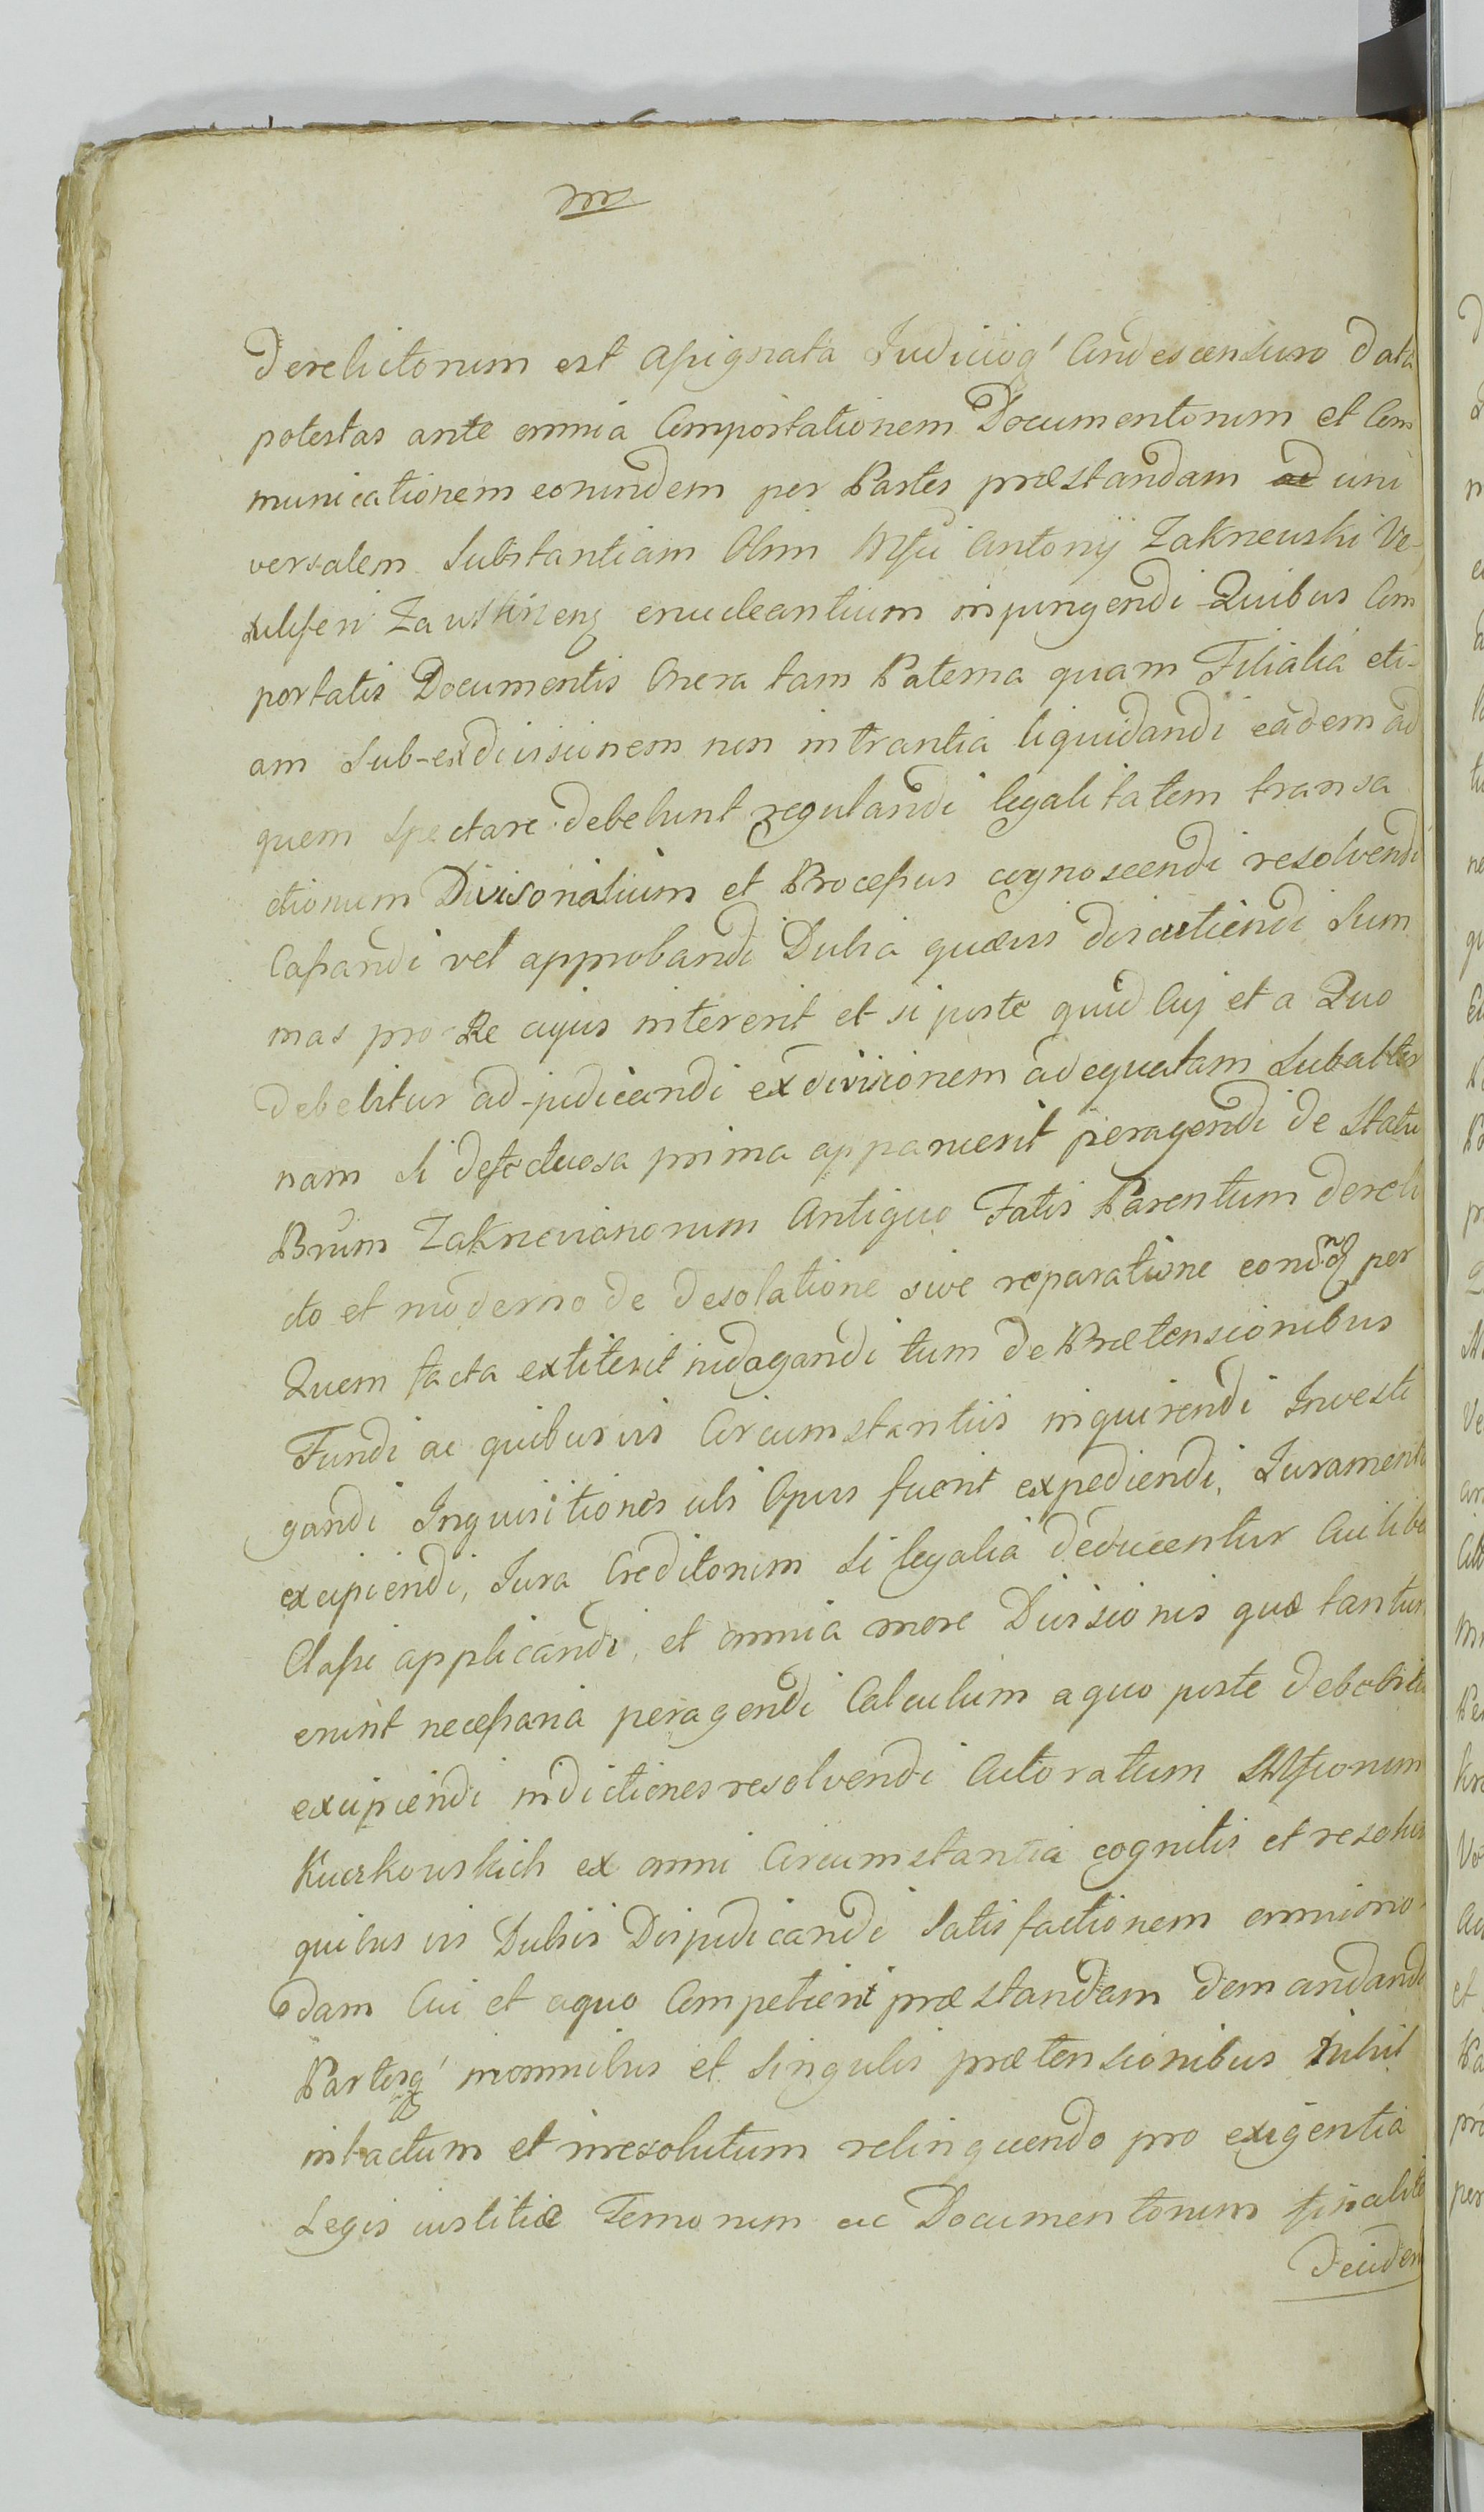 Derelictorum est assignata Judicioq' Condescensuro data
potestas ante omnia Comportationem Documentorum et Com
municationem eorundem per Partes præstandam ad uni
versalem Substantiam Olim Antonij Zakrzewski Ve
xilliferi enucleantium injungendi Quibus Com
portatis Documentis Onera tam Paterna quam Filialia eti-
am Sub-exdivisionem non intrantia liquidandi eadem ad
quem spectare debebunt regulandi legalitatem transa
ctionum Divisorialium et Processus cognoscendi resolvendi
Cassandi vel approbandi Dubia quævis discutiendi Sum
mas pro Re cujus intererit et si juste quid Cuj et a Quo
debebitur ad-judicandi exdivisionem adequatam Subalter
nam si defectuosa prima apparuerit peragendi de Statu
Brum Zakrzevianorum Antiquo Fatis Parentum dereli
cto et moderno de desolatione sive reparatione per
Quem facta extiterit indagandi tum de Prætensionibus
Fundi ac quibusvis Circumstantiis inquirendi Investi
gandi Inquisitiones ubi Opus fuerit expediendi, Juramenta
excipiendi, Jura Creditorum si legalia deducentur Cuilibet
Classi applicandi, et omnia more Divisionis quæ tantum
erunt necessaria peragendi Calculum a quo juste debebitur
excipiendi indictiones resolvendi Actoratum
Kuczkowskich ex omni Circumstantia cognitis et resolutis
quibus vis Dubiis Dijudicandi Satisfactionem omnimo
dam Cui et a quo Competierit præstandam demandandi
Partesq' in omnibus et Singulis prætensionibus nihil
intactum et irresolutum relinquendo pro exigentia
Legis iustitiæ Termonum ac Documentorum finaliter
Deciden